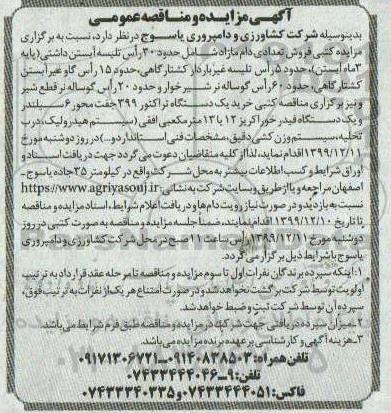 آگهی مزایده و مناقصه عمومی
بدینوسیله شرکت کشاورزی و دامپروری یاسوج در نظر دارد، نسبت به برگزاری
مزایده کتبی فروش تعدادی دام مازاد شامل حدود ۳۰ رأس تلیسه آبستن داشتی (پایه
۳ ماه آبستن)، حدود ۵ راس تلیسه غیرباردار کشتارگاهی، حدود ۱۵ رأس گاو غیرآبستن
کشتارگاهی، حدود ۶۰ راس گوساله نر شیرخوار و حدود ۲۰ رأس گوساله نر قطع شیر
و نیز برگزاری مناقصه کتبی خرید یک دستگاه تراکتور ۳۹۹ جفت محور ۶ سیلندر
و یک دستگاه فیدر خوراکریز ۱۲ یا ۱۳ مترمکعبی افقی (سیستم هیدرولیک، درب
تخلیه، سیستم وزن کشی دقیق، مشخصات فنی استاندارد و...) در روز دوشنبه مورخ
۱۳۹۹/۱۲/۱۱ اقدام نماید، لذا از کلیه متقاضیان دعوت می گردد جهت دریافت اسناد و
اوراق شرایط و کسب اطلاعات بیشتر به محل شرکت واقع در کیلومتر ۳۵ جاده یاسوج -
اصفهان مراجعه و یا از طریق وبسایت شرکت به نشانی: https://www.agriyasouj.ir
نسبت به بازدید و در صورت نیاز رویت دام ها و دریافت اعلام شرایط، اسناد مزایده و مناقصه
تا تاریخ ۱۳۹۹/۱۲/۱۰ اقدام نمایند، ضمناً جلسه مزایده و مناقصه به صورت کتبی در روز
دوشنبه مورخ ۱۳۹۹/۱۲/۱۱ رأس ساعت ۱۱ صبح در محل شرکت کشاورزی و دامپروری
یاسوج با شرایط ذیل برگزار می گردد.
۱: اینکه سپرده برندگان نفرات اول تا سوم مزایده و مناقصه تا مرحله عقد قرارداد به ترتیب
اولویت توسط شرکت برگشت نخواهد شد و در صورت امتناع هر یک از نفرات به ترتیب فوق،
سپرده آن توسط شرکت ثبت و ضبط خواهد شد.
۲- میزان سپرده دریافتی جهت شرکت در مزایده و مناقصه طبق فرم شرایط می باشد.
۳- هزینه آگهی و کارشناسی بر عهده برنده مزایده می باشد.
تلفن همراه: ۰۹۱۴۰۸۳۸۵۰۳-۰۹۱۷۱۳۰۶۷۲۱
تلفن: ۹-۰۷۴۳۳۴۴۴۰۴۶
فاکس: ۰۷۴۳۳۴۴۴۰۵۱ و ۰۷۴۳۳۳۴۰۳۳۵